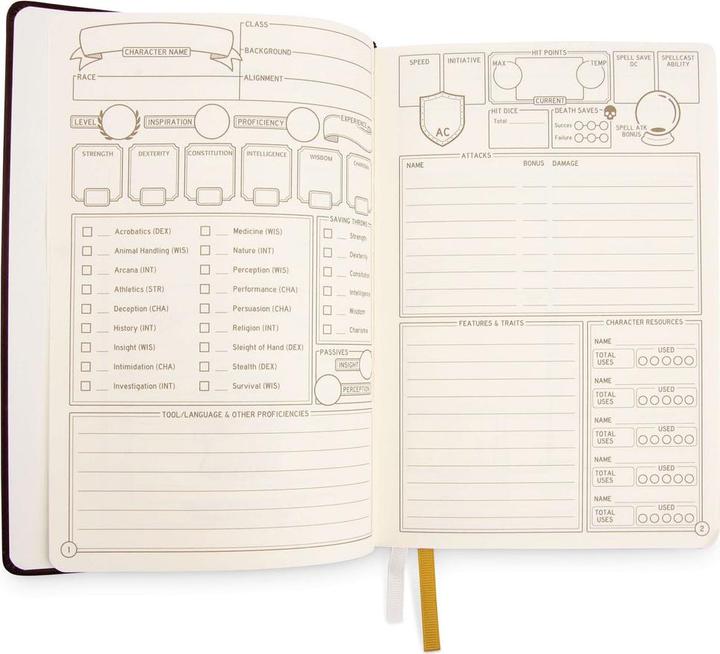 CHARACTER NAME
CLASS
BACKGROUND
RACE
ALIGNMENT
LEVEL
INSPIRATION
PROFICIENCY
STRENGTH
DEXTERITY
CONSTITUTION
INTELLIGENCE
WISDOM
Acrobatics (DEX)
Animal Handling (WIS)
Arcana (INT)
Athletics (STR)
Deception (CHA)
History (INT)
Insight (WIS)
Intimidation (CHA)
Investigation (INT)
Medicine (WIS)
Nature (INT)
Perception (WIS)
Performance (CHA)
Persuasion (CHA)
Religion (INT)
Sleight of Hand (DEX)
Stealth (DEX)
Survival (WIS)
SAVING THROWS
Strength
Dexterity
Constitution
Intelligence
Wisdom
Charisma
PASSIVES
INSIGHT
PERCEPTION
TOOL/LANGUAGE & OTHER PROFICIENCIES
1
SPEED
INITIATIVE
AC
HIT POINTS
MAX
TEMP
CURRENT
HIT DICE
Total
DEATH SAVES
Succes
Failure
SPELL SAVE
DC
SPELLCAST
ABILITY
SPELL ATK
BONUS
ATTACKS
NAME BONUS DAMAGE
FEATURES & TRAITS
CHARACTER RESOURCES
NAME
TOTAL
USES
USED
NAME
TOTAL
USES
USED
NAME
TOTAL
USES
USED
NAME
TOTAL
USES
USED
NAME
TOTAL
USES
USED
2